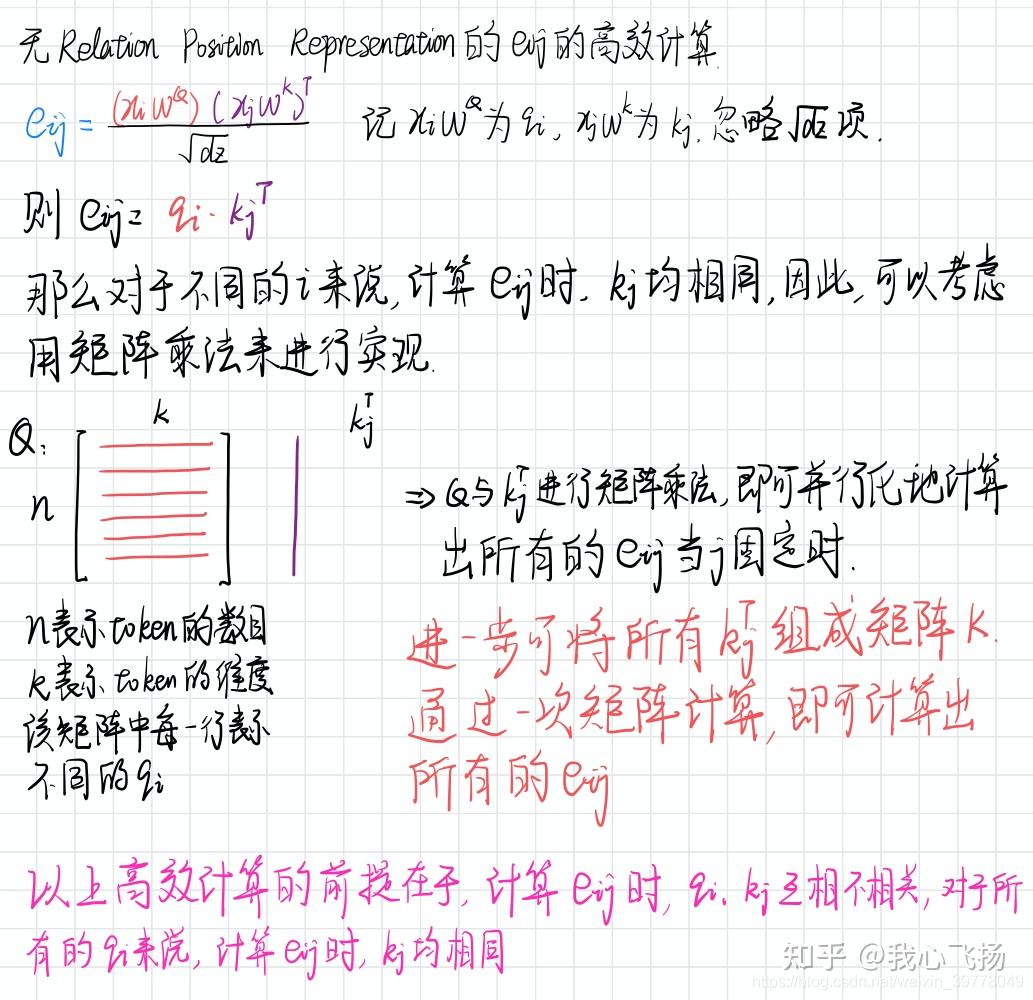 无 Relation Position Representation 的 eij 的高效计算.
eij = (xiW^Q)(xjW^K)^T / √dz 记 xiW^Q 为 qi, xjW^K 为 kj. 忽略√dz 项.
则 eij = qi · kj^T
那么对于不同的i来说, 计算 eij时, kj均相同, 因此, 可以考虑
用矩阵乘法来进行实现.
k kj^T
Q:
n
⇒ Q与kj^T进行矩阵乘法, 即可并行化地计算
出所有的 eij 当j固定时.
n表示token的数目
k表示token的维度
该矩阵中每一行表示
不同的qi
进一步可将所有kj^T组成矩阵K.
通过一次矩阵计算, 即可计算出
所有的 eij
以上高效计算的前提在于, 计算 eij 时, qi, kj 互相不相关, 对于所
有的 qi来说, 计算eij时, kj均相同
知乎 @我心飞扬
https://blog.csdn.net/weixin_39778049